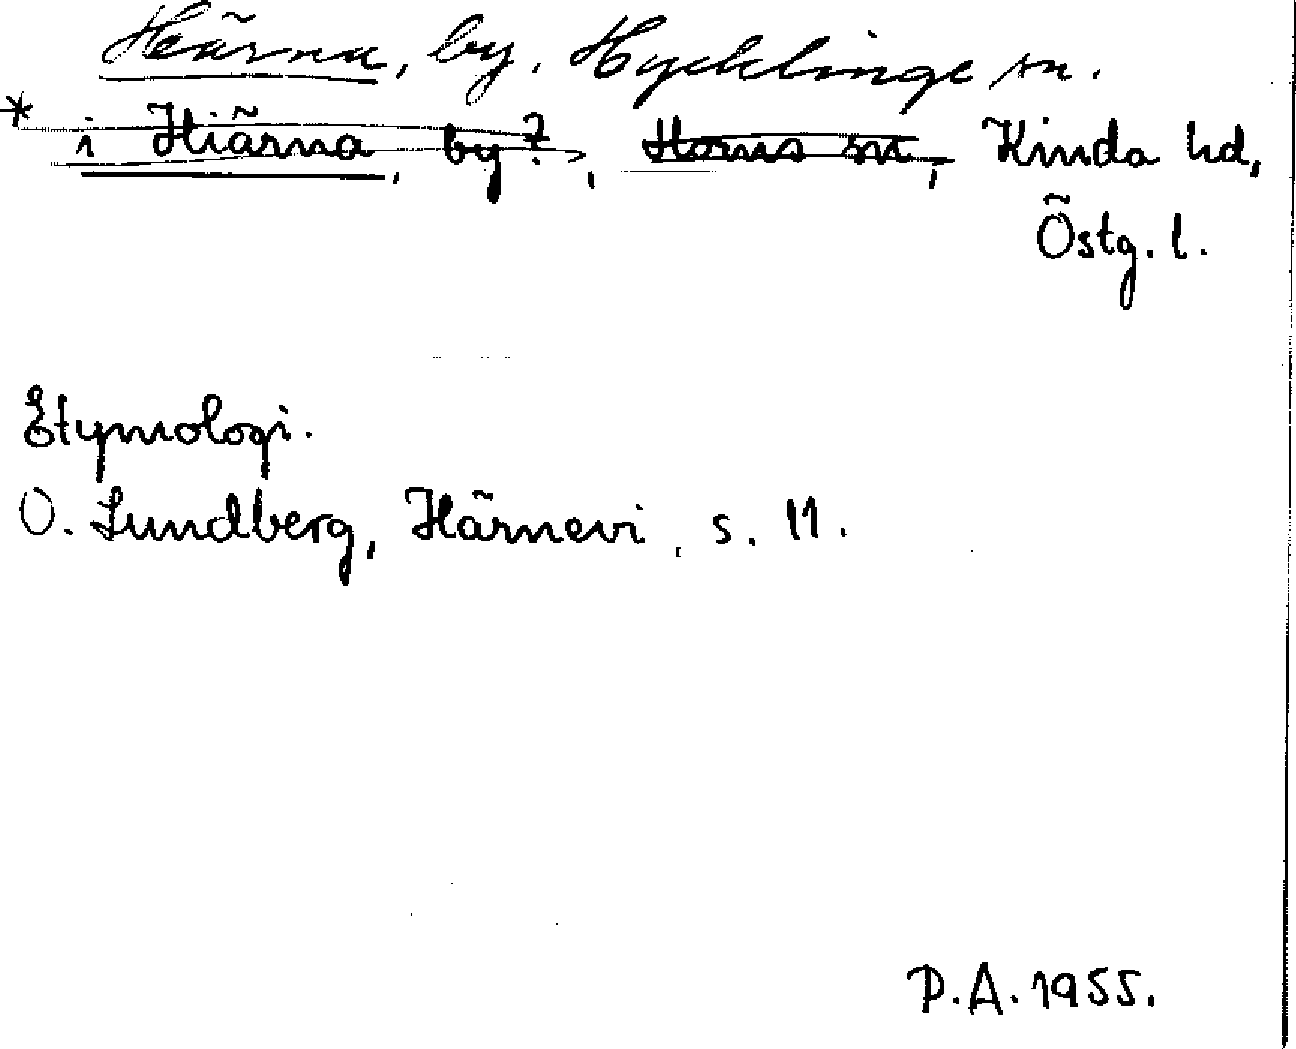 Heärna, by, Hycklinge sn.
* i Hiärna, by?, Horns sn, Kinda hd,
Östg. l.
Etymologi.
O. Lundberg, Härnevi, s. 11.
P.A. 1955.